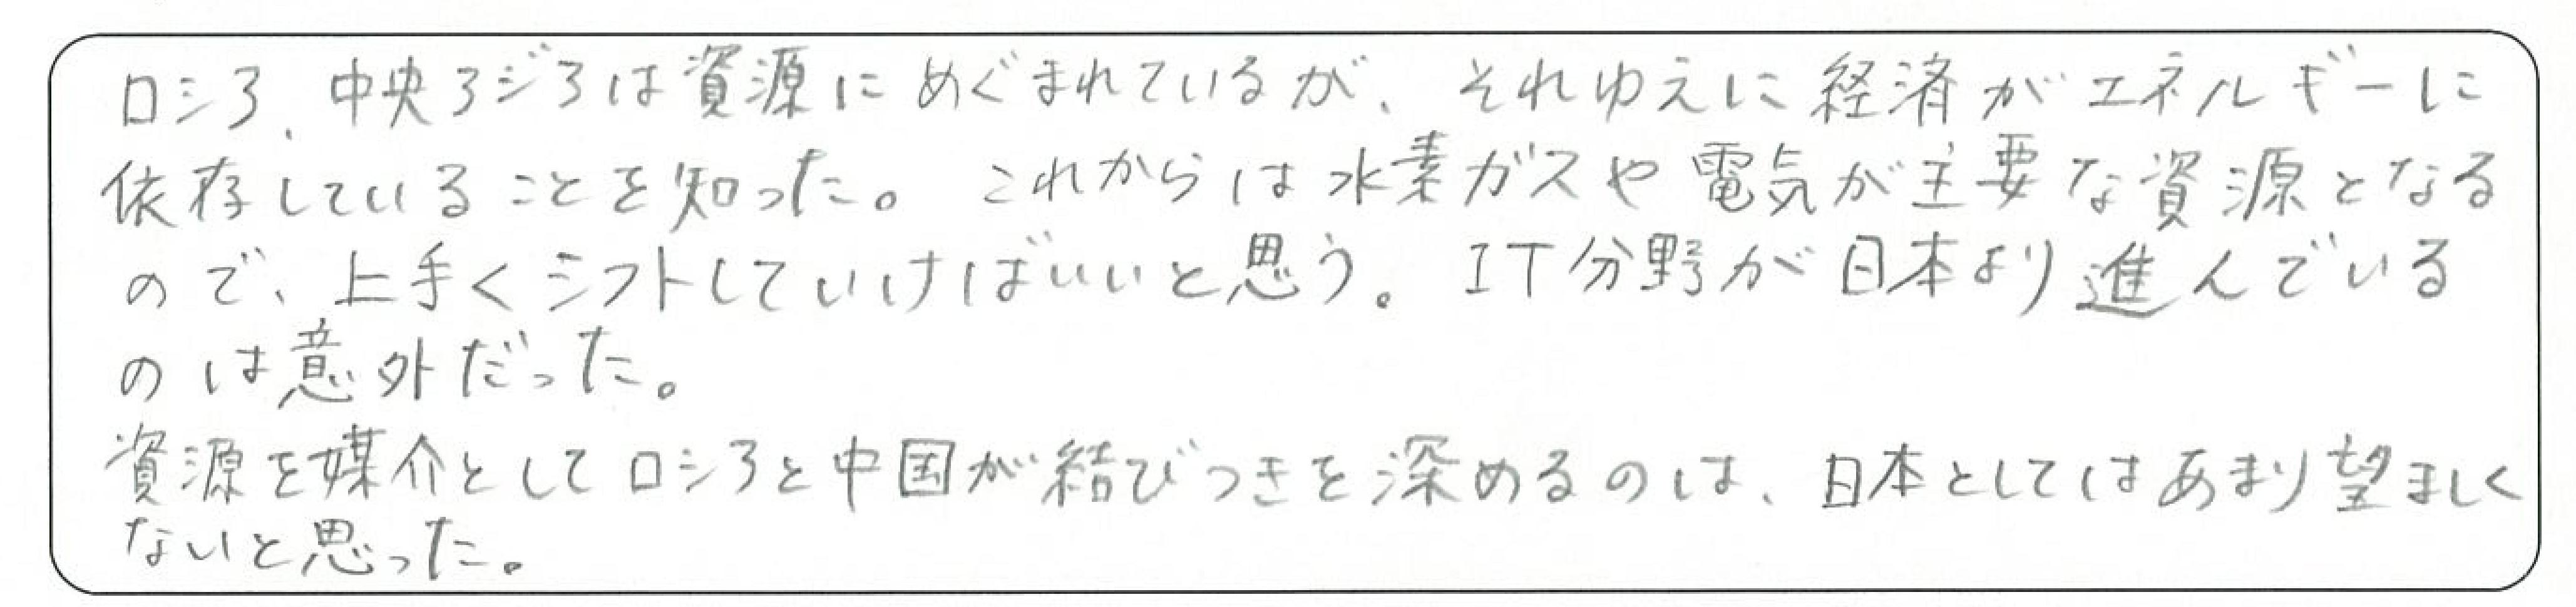 ロシア、中央アジアは資源にめぐまれているが、それゆえに経済がエネルギーに
依存していることを知った。これからは水素ガスや電気が主要な資源となる
ので、上手くシフトしていけばいいと思う。IT分野が日本より進んでいる
のは意外だった。
資源を媒介としてロシアと中国が結びつきを深めるのは、日本としてはあまり望ましく
ないと思った。